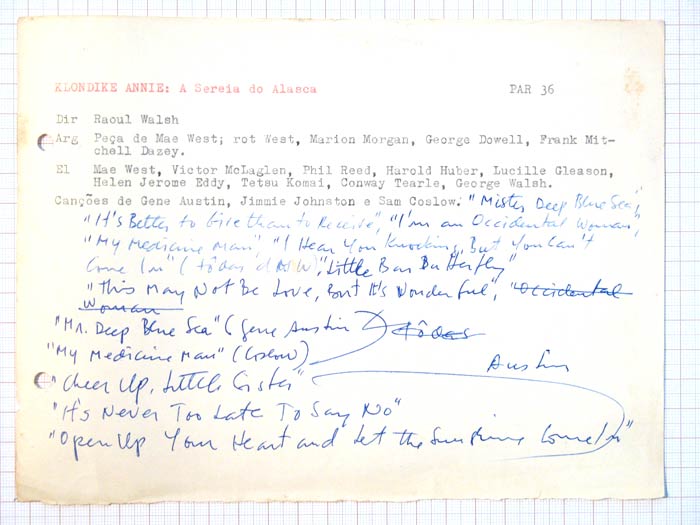 KLONDIKE ANNIE: A Sereia do Alasca PAR 36
Dir Raoul Walsh
Arg Peça de Mae West; rot West, Marion Morgan, George Dowell, Frank Mit-
chell Dazey.
El Mae West, Victor McLaglen, Phil Reed, Harold Huber, Lucille Gleason,
Helen Jerome Eddy, Tetsu Komai, Conway Tearle, George Walsh.
Canções de Gene Austin, Jimmie Johnston e Sam Coslow. "Mister Deep Blue Sea",
"It's Better to Give than to Receive", "I'm an Occidental Woman",
"My Medicine Man", "I Hear You Knocking, But You Can't
Come In" (tôdas d MW), "Little Bar Butterfly"
"This May Not Be Love, But It's Wonderful", "Occidental
Woman
"Mr. Deep Blue Sea" (Gene Austin) tôdas
"My Medicine Man" (Coslow) Austin
"Cheer Up, Little Sister"
"It's Never Too Late To Say No"
"Open Up Your Heart and Let the Sunshine Come In"